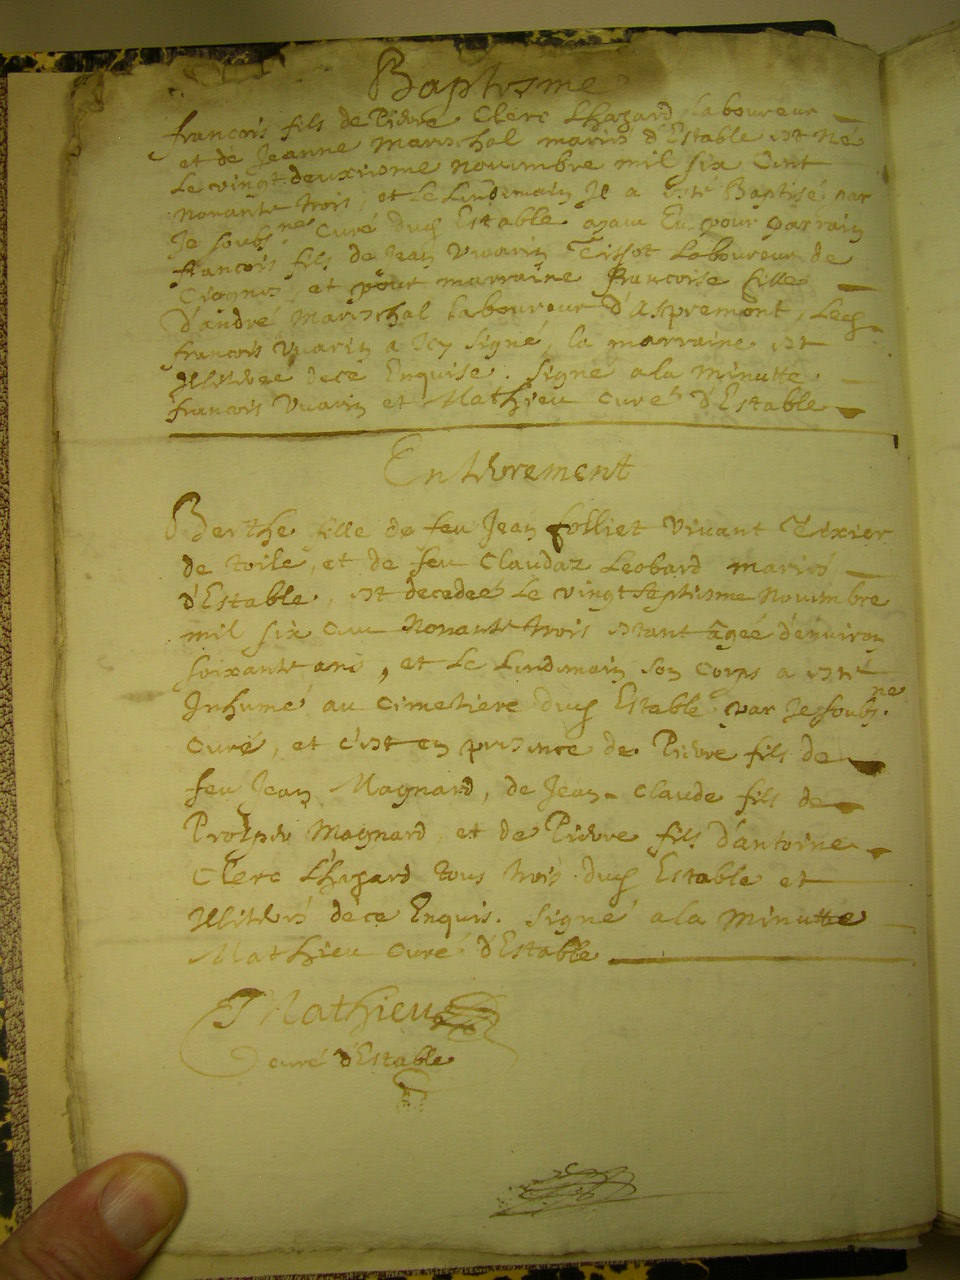 Baptesme
françois fils de Pierre Clerc Lhazard Laboureur
et de Jeanne Mareschal mariés d'Estable est né
Le vingt deuxiesme nouembre mil six Cent
nonante trois, et Le Lendemain Il a Esté Baptisé par
Je soubs.né Curé dud Estable ayant Eu pour parrain
françois fils de Jean Vuarin Tissot Laboureur de
et pour marraine françoise fille
D'andré Mareschal Laboureur d'Aspremont, Led
françois Vuarin a Icy signé, la marraine est
Illiteree de ce Enquise. Signé a la Minutte.
françois Vuarin et Mathieu Curé d'Estable
Enterrement
Berthe fille de feu Jean folliet Vivant Tixier
de toile, et de feu Claudaz Leobard mariés
d'Estable, est decedeé Le vingt septiesme Nouembre
mil six Cent Nonante trois estant âgeé d'enuiron
soixante ans, et Le Lendemain son Corps a esté
Inhumé au Cimetiere dud Estable par Je soubs.né
Curé, et c'est en presence de Pierre fils de
feu Jean Magnard, de Jean-Claude fils de
Prosper Magnard, et de Pierre fils d'antoine
Clerc Lhazard tous trois dud Estable et
Illiterés de ce Enquis. Signé a la Minutte
Mathieu Curé d'Estable
Mathieu
curé d'Estable